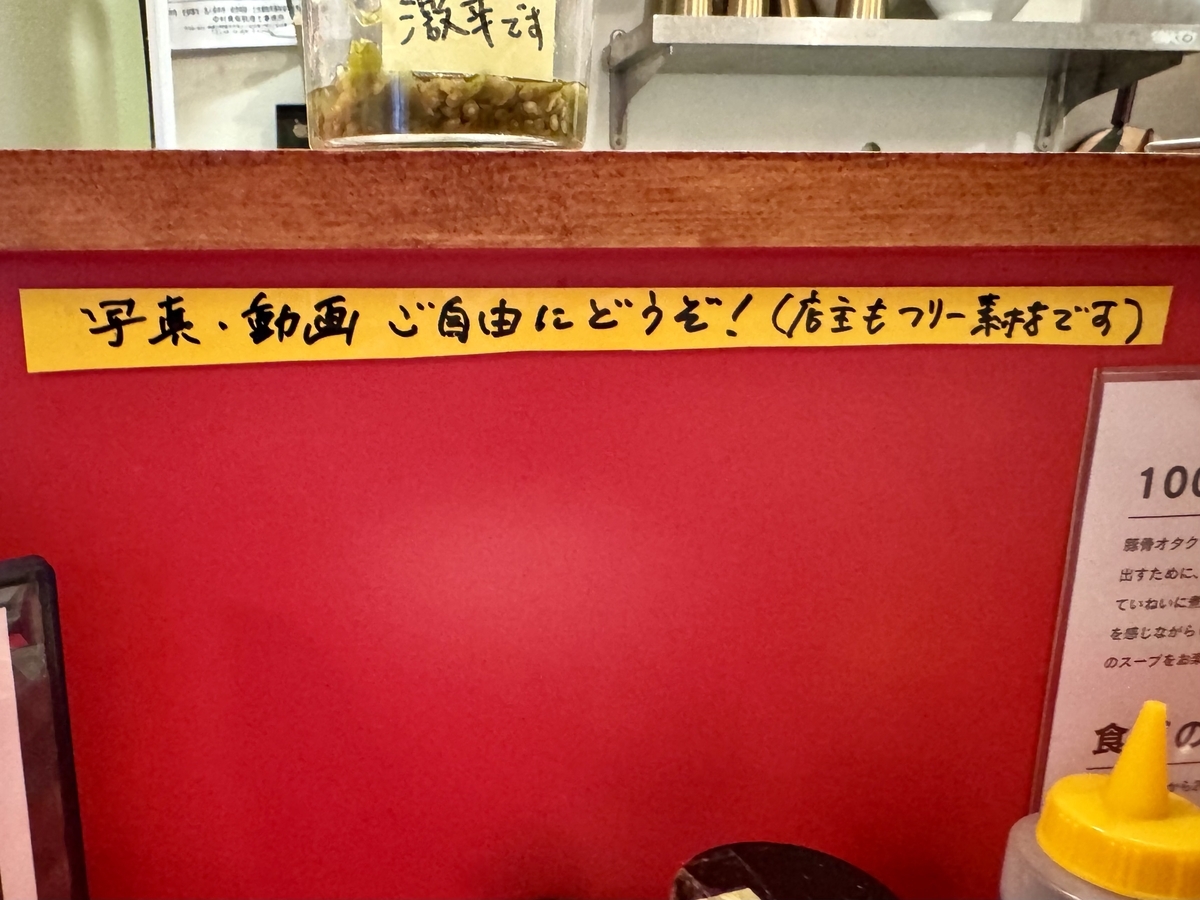 激辛です
写真・動画 ご自由にどうぞ!(店主もフリー素材です)
100
豚骨オタク
出すために、
ていねいに
を感じながら
のスープをお
食 の
から